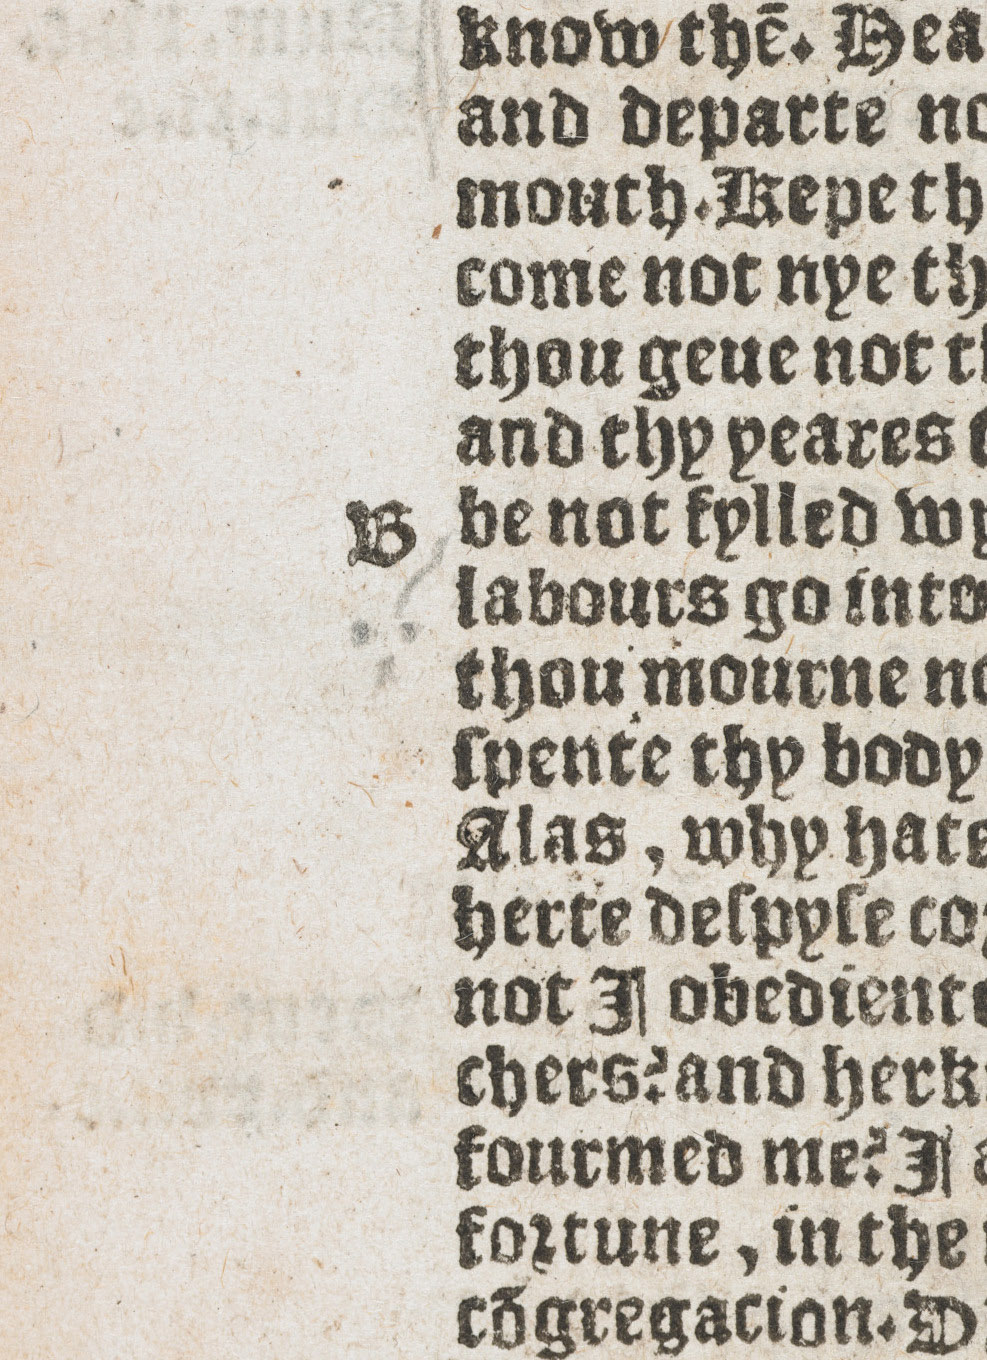 know thē. Hea
and departe no
mouth. Kepe th
come not nye th
thou geue not th
and thy yeares
B be not fylled wy
labours go into
thou mourne no
ſpente thy body
Alas, why hate
herte deſpyſe co
not I obedient
chers? and herk
fourmed me? I a
foꝛtune, in the
cōgregacion. D